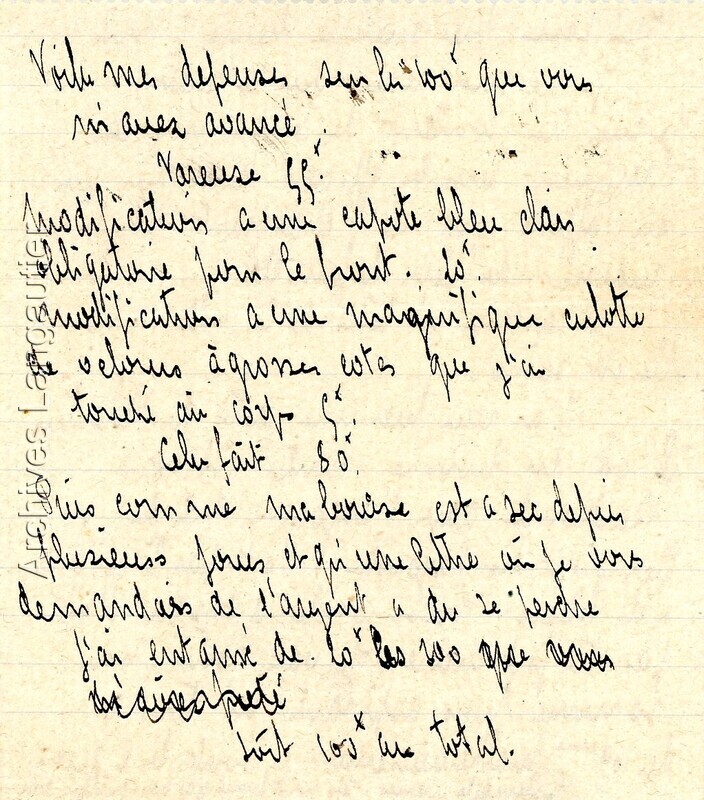 Voila mes depenses sur les 100ᶠ que vous
m'avez avancé.
Vareuse 55ᶠ.
Modifications a une capote bleu clair
obligatoire pour le front. 20ᶠ.
modification a une magnifique culotte
de velours à grosses cotes que j'ai
touché au corps 5ᶠ.
Cela fait 80ᶠ.
Puis comme ma bourse est a sec depuis
plusieurs jours et qu'une lettre où je vous
demandais de l'argent a du se perdre
j'ai entamé de 20ᶠ les 100 que vous
m'avez preté
soit 100ᶠ au total.
Archives Langautier